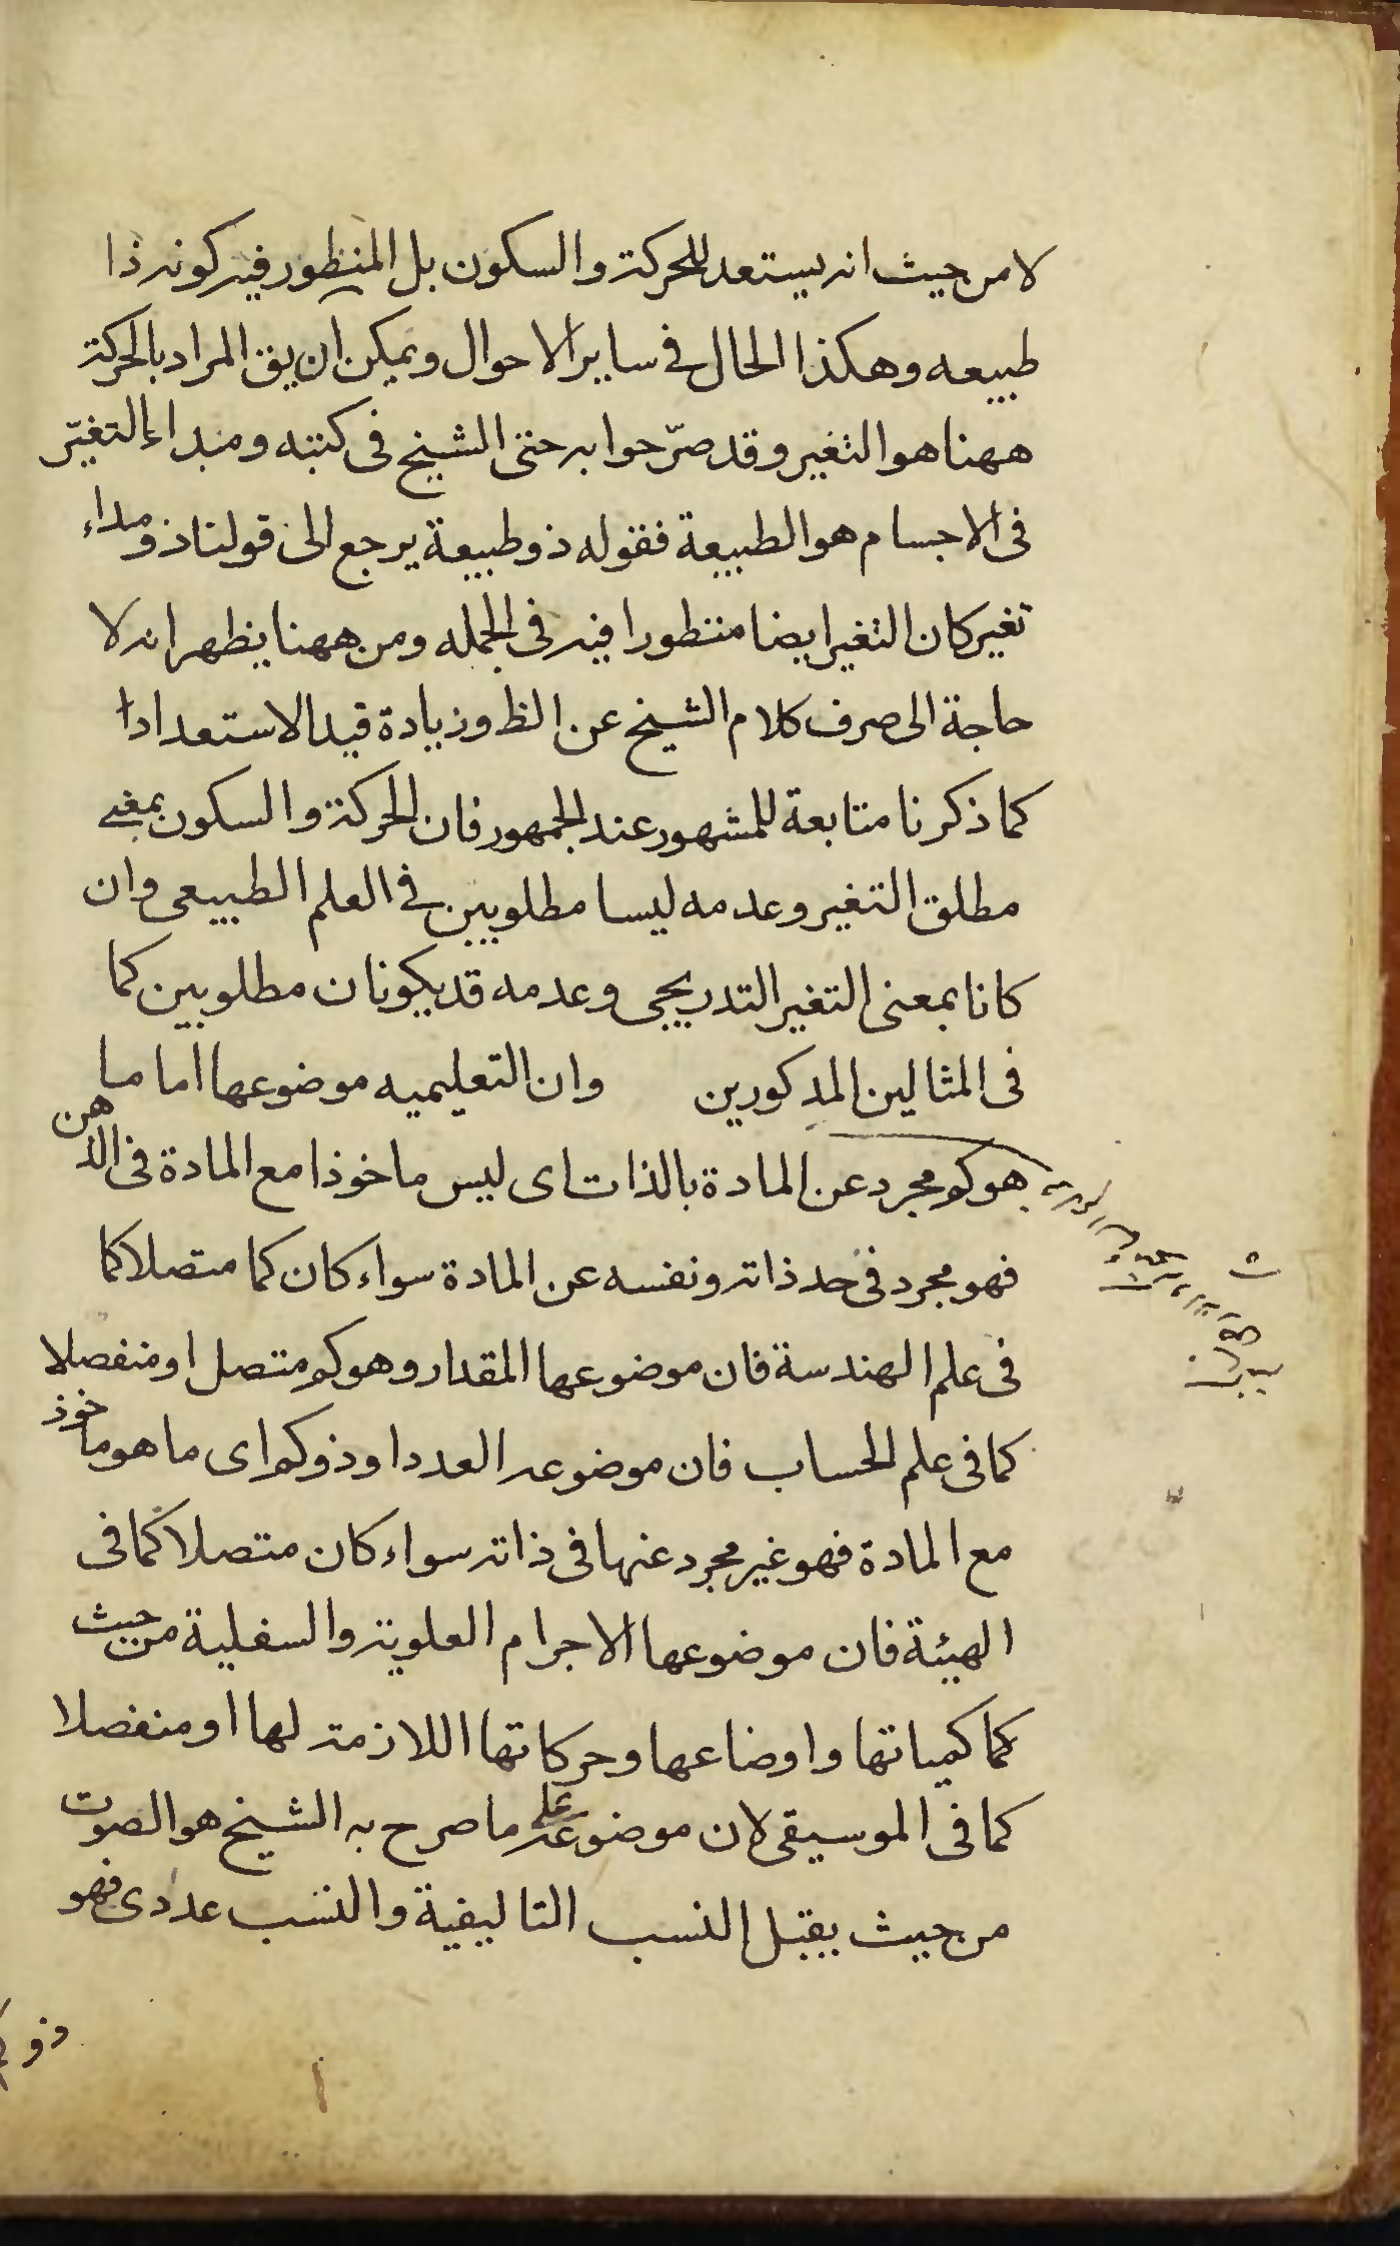 لا من حيث انه يستعد للحركة والسكون بل المنظور فيه كونه ذا
طبيعه وهكذا الحال في ساير الاحوال ويمكن ان يق المراد بالحركة
ههنا هو التغير وقد صرّحوا به حتى الشيخ فى كتبه ومبداء التغيّر
فى الاجسام هو الطبيعة فقوله ذو طبيعة يرجع الى قولنا ذو مبداء
تغير كان التغير ايضا منتظورا فيه فى الجمله ومن ههنا يظهر انه لا
حاجة الى صرف كلام الشيخ عن الظ وزيادة قيد الاستعداد اذا
كما ذكرنا متابعة للمشهور عند الجمهور فان الحركة والسكون بمعنى
مطلق التغير وعدمه ليسا مطلوبين في العلم الطبيعى وان
كانا بمعنى التغير التدريجى وعدمه قد يكونان مطلوبين كما
فى المثالين المذكورين وان التعليميه موضوعها اما ما
هو كم مجرد عن المادة بالذات اى ليس ماخوذا مع المادة فى الذهن
فهو مجرد فى حد ذاته ونفسه عن المادة سواء كان كما متصلا كما
فى علم الهندسة فان موضوعها المقدار وهو كم متصل او منفصلا
كما فى علم الحساب فان موضوعه العدد او ذو كم اى ما هو ماخوذ
مع المادة فهو غير مجرد عنها فى ذاته سواء كان متصلا كما فى
الهيئة فان موضوعها الاجرام العلوية والسفلية من حيث
كما كمياتها واوضاعها وحركاتها اللازمة لها او منفصلا
كما فى الموسيقى لان موضوعه على ما صرح به الشيخ هو الصوت
من حيث يقبل النسب التاليفية والنسب عددى فهو
ذو